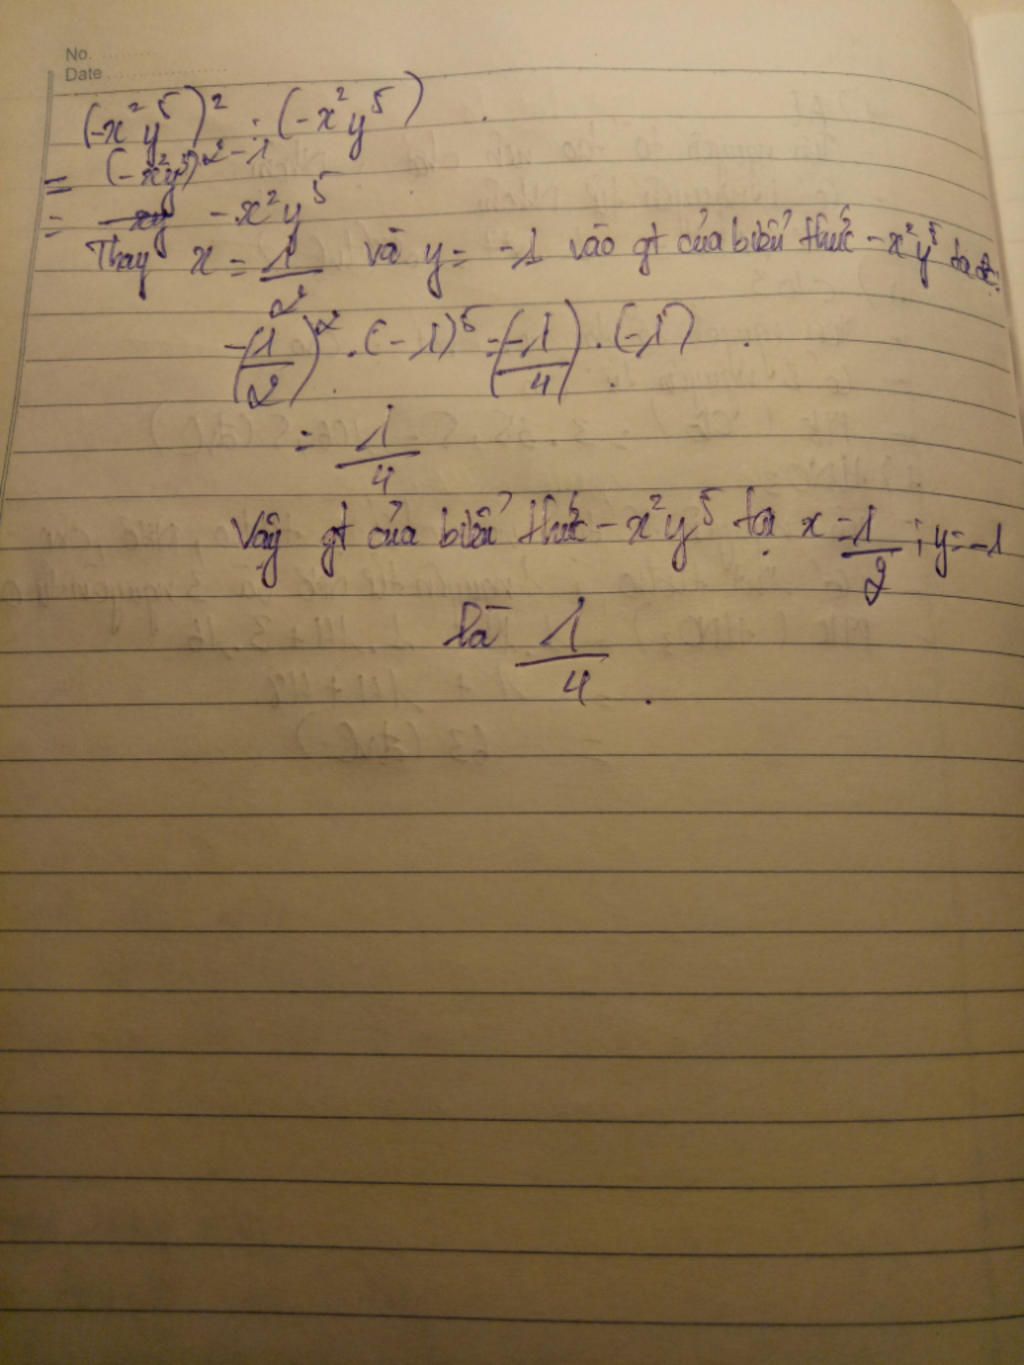 No.
Date
(-x²y⁵)² : (-x²y⁵)
= (-x²y⁵)²⁻¹
= -x²y⁵
Thay x = 1/2 và y = -1 vào gt của biểu thức -x²y⁵ ta đc:
-(1/2)² . (-1)⁵ = (-1/4) . (-1)
= 1/4
Vậy gt của biểu thức -x²y⁵ tại x = 1/2 ; y = -1
là 1/4.